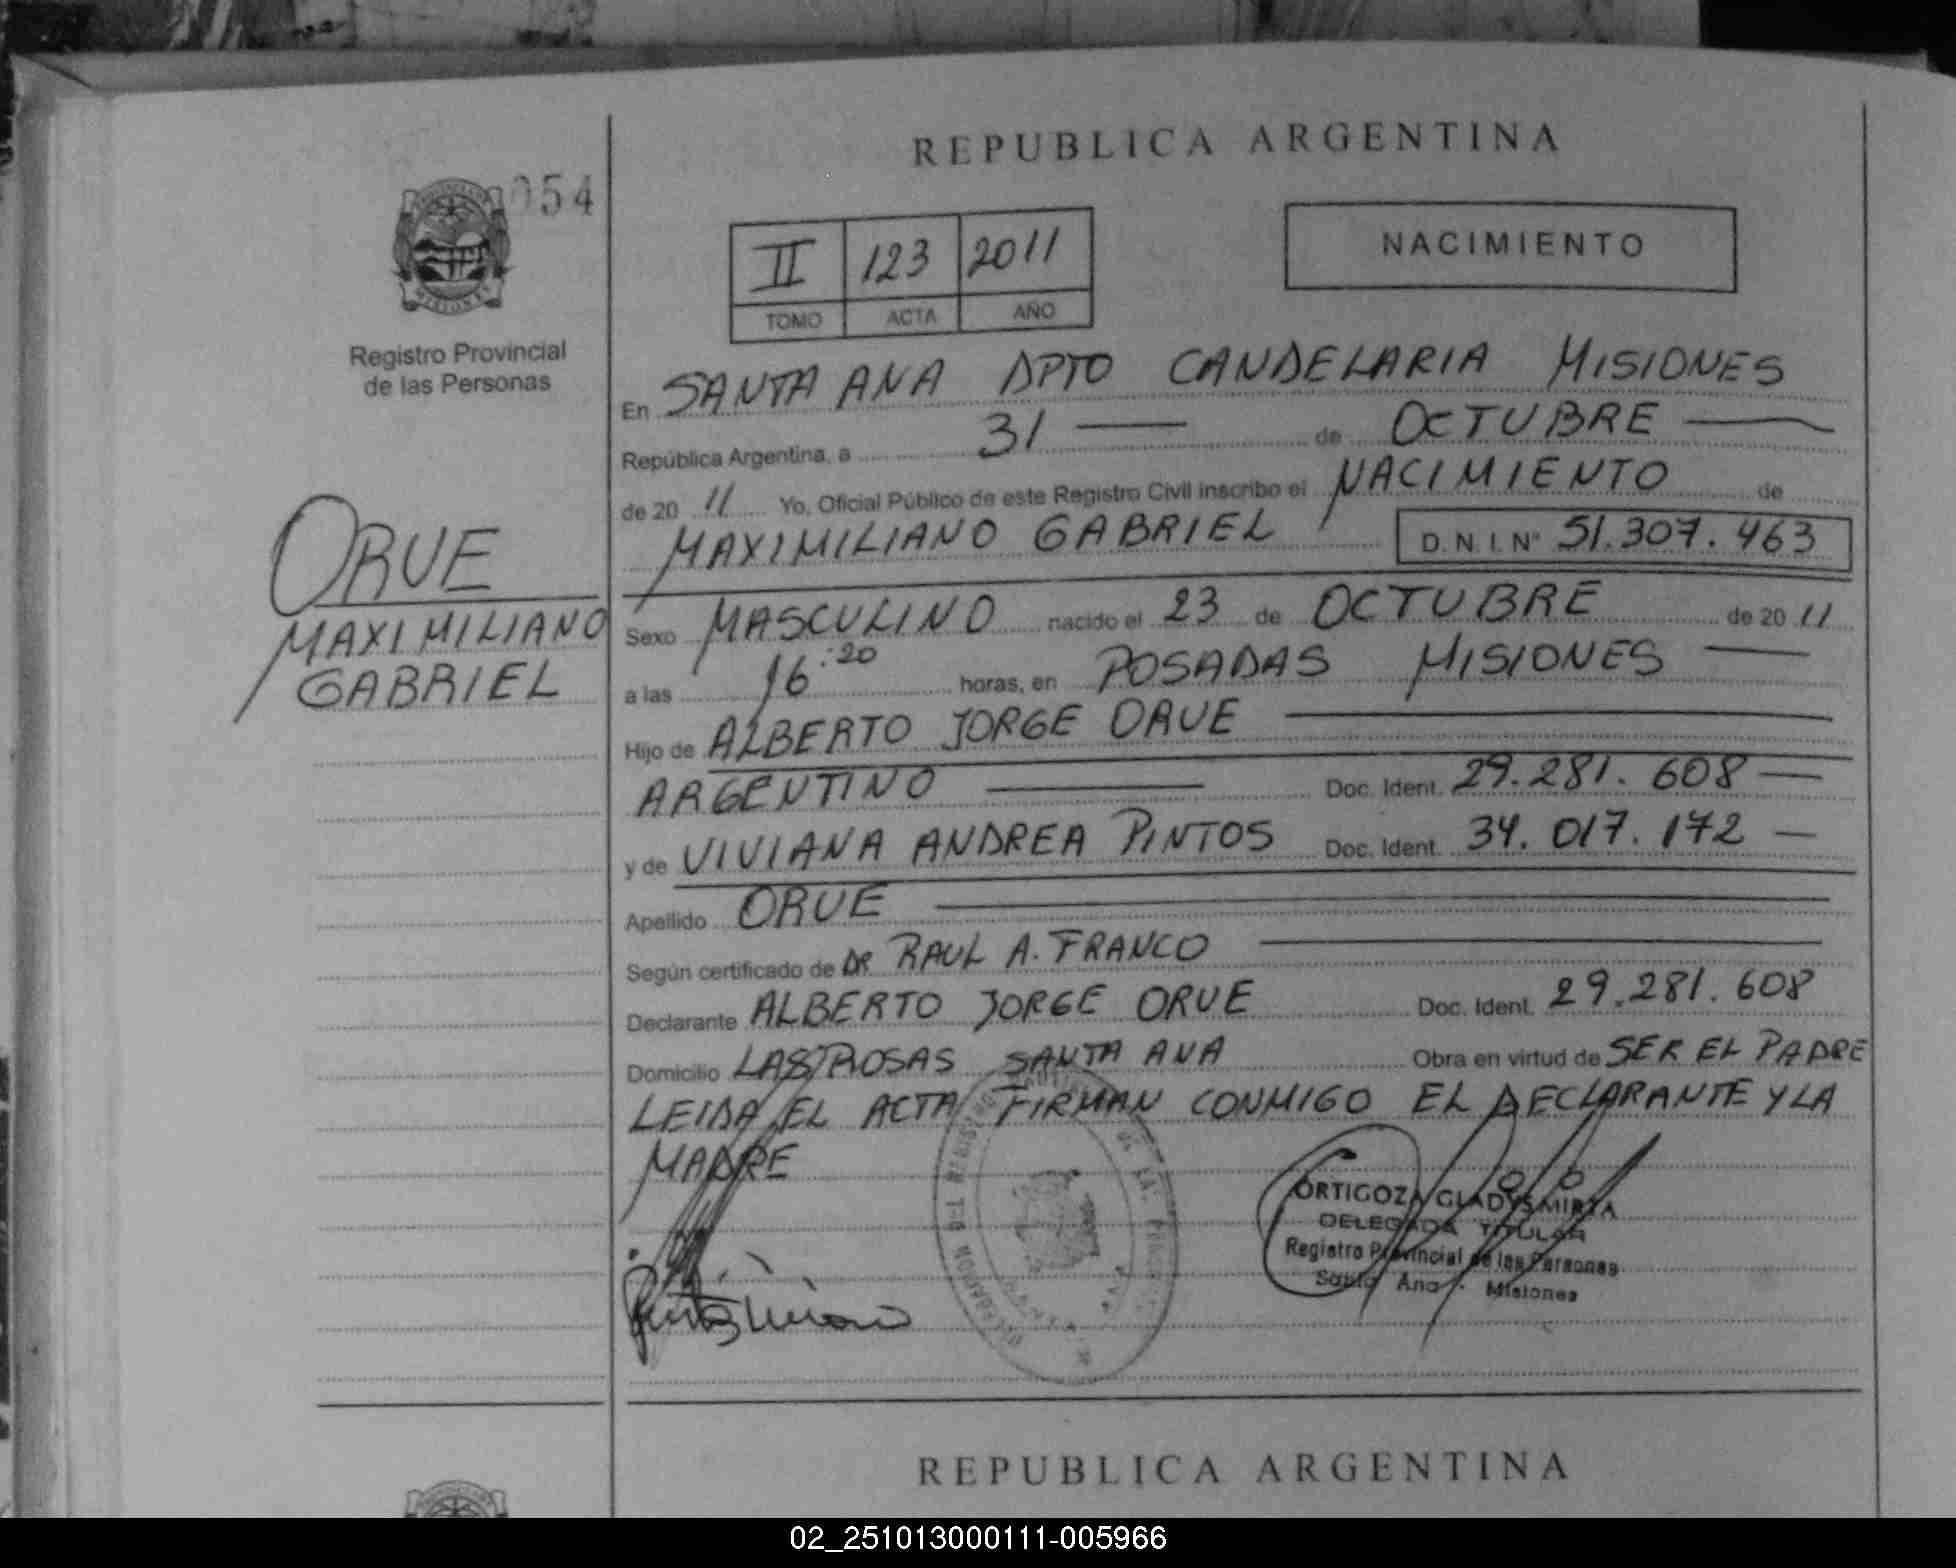 REPUBLICA ARGENTINA
054
II 123 2011
TOMO ACTA AÑO
NACIMIENTO
Registro Provincial
de las Personas
ORUE
MAXIMILIANO
GABRIEL
En SANTA ANA DPTO CANDELARIA MISIONES
República Argentina, a 31 de OCTUBRE
de 20 11 Yo, Oficial Público de este Registro Civil inscribo el NACIMIENTO de
MAXIMILIANO GABRIEL D.N.I. Nº 51.307.463
Sexo MASCULINO nacido el 23 de OCTUBRE de 20 11
a las 16:20 horas, en POSADAS MISIONES
Hijo de ALBERTO JORGE ORUE
ARGENTINO Doc. Ident. 29.281.608
y de VIVIANA ANDREA PINTOS Doc. Ident. 34.017.172
Apellido ORUE
Según certificado de DR RAUL A. FRANCO
Declarante ALBERTO JORGE ORUE Doc. Ident. 29.281.608
Domicilio LAS ROSAS SANTA ANA Obra en virtud de SER EL PADRE
LEIDA EL ACTA FIRMAN CONMIGO EL DECLARANTE Y LA
MADRE
ORTIGOZA GLADYS MIRTA
DELEGADA TITULAR
Registro Provincial de las Personas
Santa Ana - Misiones
REPUBLICA ARGENTINA
02_251013000111-005966